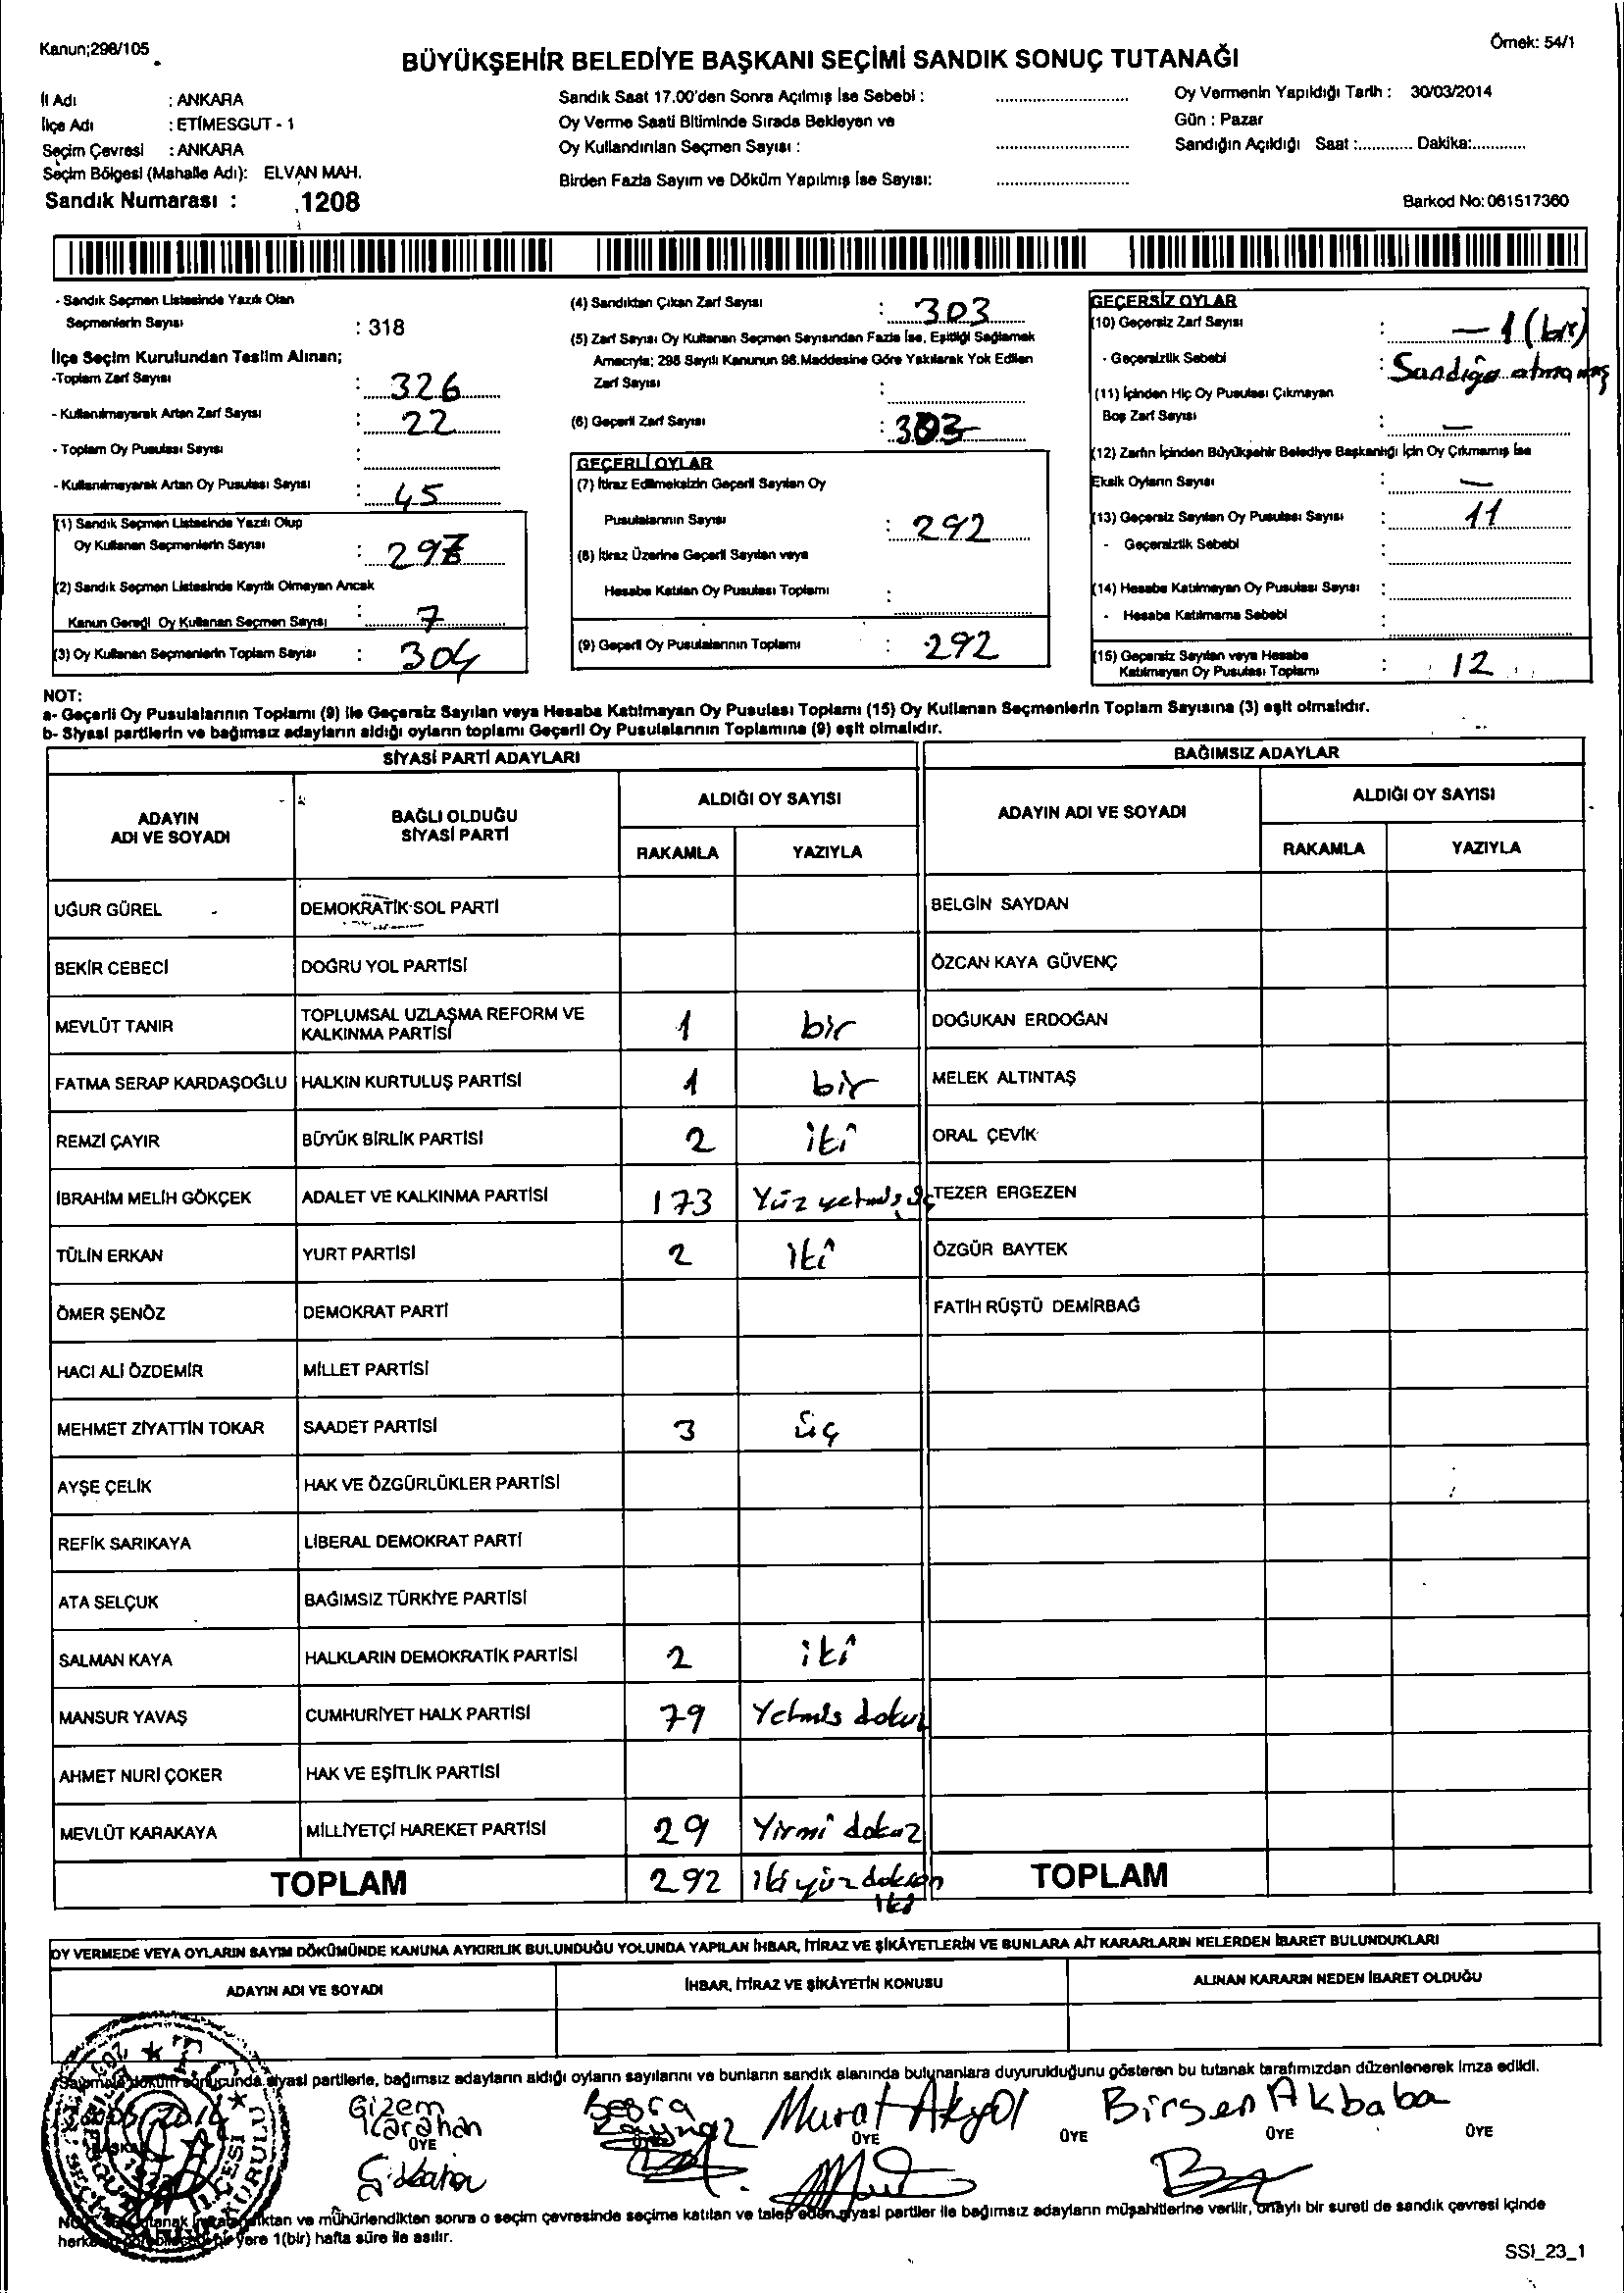 Kanun;298/105
Örnek: 54/1
BÜYÜKŞEHİR BELEDİYE BAŞKANI SEÇİMİ SANDIK SONUÇ TUTANAĞI
İl Adı : ANKARA
İlçe Adı : ETİMESGUT - 1
Seçim Çevresi : ANKARA
Seçim Bölgesi (Mahalle Adı): ELVAN MAH.
Sandık Numarası : 1208
Sandık Saat 17.00'den Sonra Açılmış İse Sebebi :
Oy Verme Saati Bitiminde Sırada Bekleyen ve
Oy Kullandırılan Seçmen Sayısı :
Birden Fazla Sayım ve Döküm Yapılmış İse Sayısı:
Oy Vermenin Yapıldığı Tarih : 30/03/2014
Gün : Pazar
Sandığın Açıldığı Saat :............ Dakika:............
Barkod No: 061517360
- Sandık Seçmen Listesinde Yazılı Olan
Seçmenlerin Sayısı : 318
İlçe Seçim Kurulundan Teslim Alınan;
-Toplam Zarf Sayısı : 326
- Kullanılmayarak Artan Zarf Sayısı : 22
- Toplam Oy Pusulası Sayısı :
- Kullanılmayarak Artan Oy Pusulası Sayısı : 45
(1) Sandık Seçmen Listesinde Yazılı Olup
Oy Kullanan Seçmenlerin Sayısı :
(2) Sandık Seçmen Listesinde Kayıtlı Olmayan Ancak
Kanun Gereği Oy Kullanan Seçmen Sayısı : 7
(3) Oy Kullanan Seçmenlerin Toplam Sayısı : 304
(4) Sandıktan Çıkan Zarf Sayısı : 303
(5) Zarf Sayısı Oy Kullanan Seçmen Sayısından Fazla İse, Eşitliği Sağlamak
Amacıyla; 298 Sayılı Kanunun 98.Maddesine Göre Yakılarak Yok Edilen
Zarf Sayısı :
(6) Geçerli Zarf Sayısı : 303
GEÇERLİ OYLAR
(7) İtiraz Edilmeksizin Geçerli Sayılan Oy
Pusulalarının Sayısı : 292
(8) İtiraz Üzerine Geçerli Sayılan veya
Hesaba Katılan Oy Pusulası Toplamı :
(9) Geçerli Oy Pusulalarının Toplamı : 292
GEÇERSİZ OYLAR
(10) Geçersiz Zarf Sayısı : — 1 (bir)
- Geçersizlik Sebebi : Sandığa atmamış
(11) İçinden Hiç Oy Pusulası Çıkmayan
Boş Zarf Sayısı : —
(12) Zarfın İçinden Büyükşehir Belediye Başkanlığı İçin Oy Çıkmamış İse
Eksik Oyların Sayısı : —
(13) Geçersiz Sayılan Oy Pusulası Sayısı : 11
- Geçersizlik Sebebi :
(14) Hesaba Katılmayan Oy Pusulası Sayısı :
- Hesaba Katılmama Sebebi :
(15) Geçersiz Sayılan veya Hesaba
Katılmayan Oy Pusulası Toplamı : 12
NOT:
a- Geçerli Oy Pusulalarının Toplamı (9) ile Geçersiz Sayılan veya Hesaba Katılmayan Oy Pusulası Toplamı (15) Oy Kullanan Seçmenlerin Toplam Sayısına (3) eşit olmalıdır.
b- Siyasi partilerin ve bağımsız adayların aldığı oyların toplamı Geçerli Oy Pusulalarının Toplamına (9) eşit olmalıdır.
SİYASİ PARTİ ADAYLARI
BAĞIMSIZ ADAYLAR
ADAYIN ADI VE SOYADI
BAĞLI OLDUĞU SİYASİ PARTİ
ALDIĞI OY SAYISI
RAKAMLA YAZIYLA
ADAYIN ADI VE SOYADI
ALDIĞI OY SAYISI
RAKAMLA YAZIYLA
UĞUR GÜREL DEMOKRATİK SOL PARTİ BELGİN SAYDAN
BEKİR CEBECİ DOĞRU YOL PARTİSİ ÖZCAN KAYA GÜVENÇ
MEVLÜT TANIR TOPLUMSAL UZLAŞMA REFORM VE KALKINMA PARTİSİ 1 bir DOĞUKAN ERDOĞAN
FATMA SERAP KARDAŞOĞLU HALKIN KURTULUŞ PARTİSİ 1 bir MELEK ALTINTAŞ
REMZİ ÇAYIR BÜYÜK BİRLİK PARTİSİ 2 iki ORAL ÇEVİK
İBRAHİM MELİH GÖKÇEK ADALET VE KALKINMA PARTİSİ 173 Yüz yetmiş üç TEZER ERGEZEN
TÜLİN ERKAN YURT PARTİSİ 2 iki ÖZGÜR BAYTEK
ÖMER ŞENÖZ DEMOKRAT PARTİ FATİH RÜŞTÜ DEMİRBAĞ
HACI ALİ ÖZDEMİR MİLLET PARTİSİ
MEHMET ZİYATTİN TOKAR SAADET PARTİSİ 3 üç
AYŞE ÇELİK HAK VE ÖZGÜRLÜKLER PARTİSİ
REFİK SARIKAYA LİBERAL DEMOKRAT PARTİ
ATA SELÇUK BAĞIMSIZ TÜRKİYE PARTİSİ
SALMAN KAYA HALKLARIN DEMOKRATİK PARTİSİ 2 iki
MANSUR YAVAŞ CUMHURİYET HALK PARTİSİ 79 Yetmiş dokuz
AHMET NURİ ÇOKER HAK VE EŞİTLİK PARTİSİ
MEVLÜT KARAKAYA MİLLİYETÇİ HAREKET PARTİSİ 29 Yirmi dokuz
TOPLAM 292 iki yüz doksan iki TOPLAM
OY VERMEDE VEYA OYLARIN SAYIM DÖKÜMÜNDE KANUNA AYKIRILIK BULUNDUĞU YOLUNDA YAPILAN İHBAR, İTİRAZ VE ŞİKÂYETLERİN VE BUNLARA AİT KARARLARIN NELERDEN İBARET BULUNDUKLARI
ADAYIN ADI VE SOYADI İHBAR, İTİRAZ VE ŞİKÂYETİN KONUSU ALINAN KARARIN NEDEN İBARET OLDUĞU
siyasi partilerle, bağımsız adayların aldığı oyların sayılarını ve bunların sandık alanında bulunanlara duyurulduğunu gösteren bu tutanak tarafımızdan düzenlenerek imza edildi.
Gizem Karahan Murat Akyol Birsen Akbaba
ÜYE ÜYE ÜYE ÜYE ÜYE
ve mühürlendikten sonra o seçim çevresinde seçime katılan ve talep eden siyasi partiler ile bağımsız adayların müşahitlerine verilir, onaylı bir sureti de sandık çevresi içinde
yere 1(bir) hafta süre ile asılır.
SSI_23_1